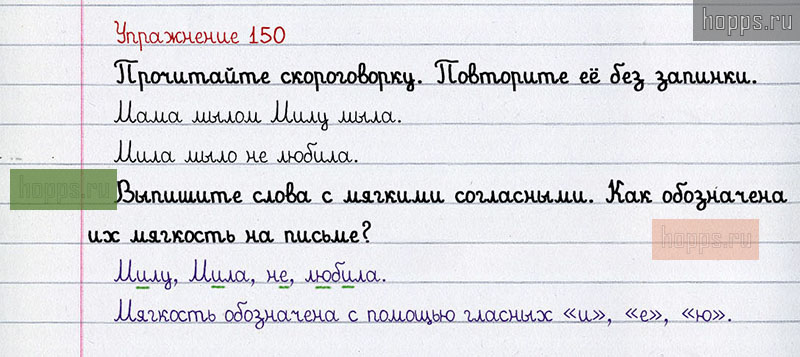 hopps.ru
Упражнение 150
Прочитайте скороговорку. Повторите её без запинки.
Мама мылом Милу мыла.
Мила мыло не любила.
hopps.ru
Выпишите слова с мягкими согласными. Как обозначена
их мягкость на письме?
hopps.ru
Милу, Мила, не, любила.
Мягкость обозначена с помощью гласных «и», «е», «ю».